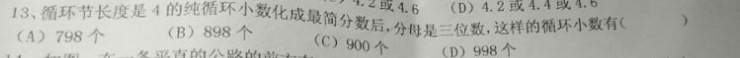 4.2或4.6 (D) 4.2或4.4或4.6
13、循环节长度是 4 的纯循环小数化成最简分数后,分母是三位数,这样的循环小数有( )
(A) 798 个 (B) 898 个 (C) 900 个 (D) 998 个
一条平直的公路的前方有